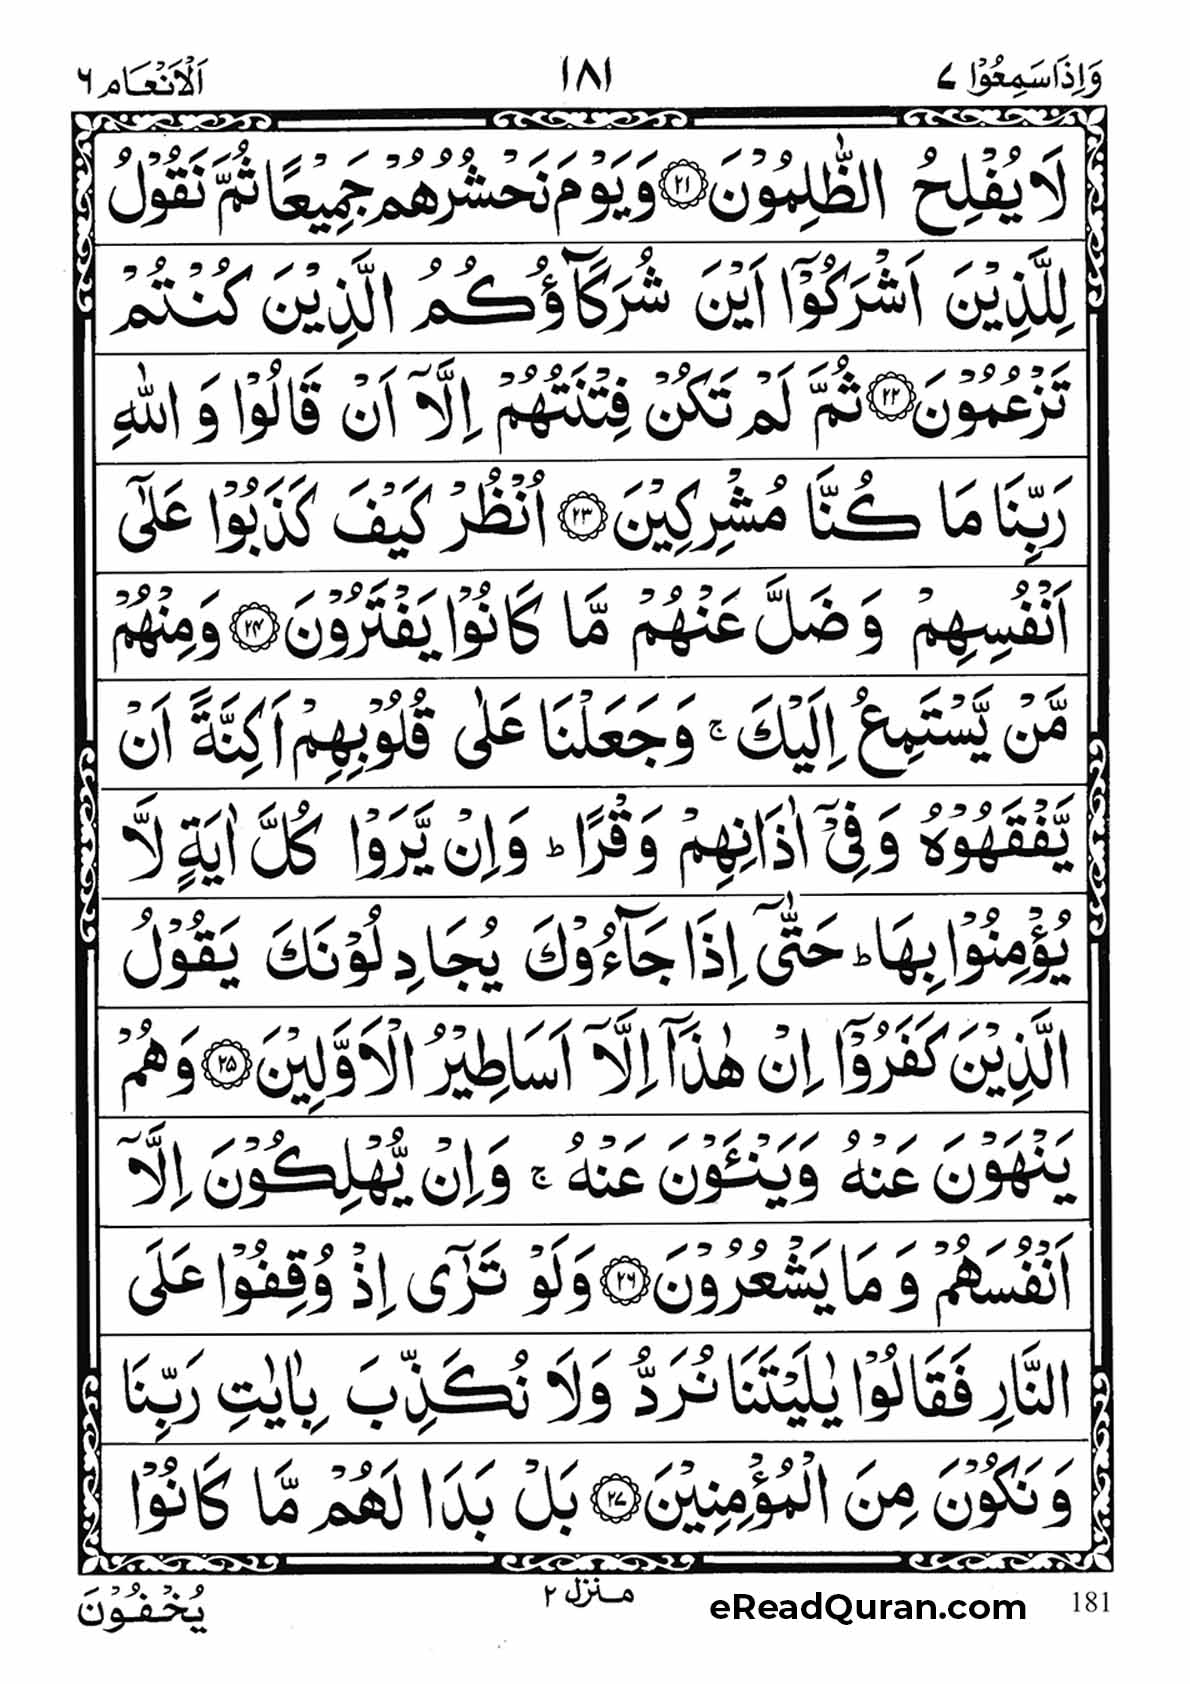 وَاِذَا سَمِعُوْا ۷ ۱۸۱ اَلْاَنْعَام ۶
لَا يُفْلِحُ الظّٰلِمُوْنَ ۲۱ وَيَوْمَ نَحْشُرُهُمْ جَمِيْعًا ثُمَّ نَقُوْلُ
لِلَّذِيْنَ اَشْرَكُوْۤا اَيْنَ شُرَكَآؤُكُمُ الَّذِيْنَ كُنْتُمْ
تَزْعُمُوْنَ ۲۲ ثُمَّ لَمْ تَكُنْ فِتْنَتُهُمْ اِلَّاۤ اَنْ قَالُوْا وَاللّٰهِ
رَبِّنَا مَا كُنَّا مُشْرِكِيْنَ ۲۳ اُنْظُرْ كَيْفَ كَذَبُوْا عَلٰۤى
اَنْفُسِهِمْ وَضَلَّ عَنْهُمْ مَّا كَانُوْا يَفْتَرُوْنَ ۲۴ وَمِنْهُمْ
مَّنْ يَّسْتَمِعُ اِلَيْكَ ۚ وَجَعَلْنَا عَلٰى قُلُوْبِهِمْ اَكِنَّةً اَنْ
يَّفْقَهُوْهُ وَفِيْۤ اٰذَانِهِمْ وَقْرًا ؕ وَاِنْ يَّرَوْا كُلَّ اٰيَةٍ لَّا
يُؤْمِنُوْا بِهَا ؕ حَتّٰۤى اِذَا جَآءُوْكَ يُجَادِلُوْنَكَ يَقُوْلُ
الَّذِيْنَ كَفَرُوْۤا اِنْ هٰذَاۤ اِلَّاۤ اَسَاطِيْرُ الْاَوَّلِيْنَ ۲۵ وَهُمْ
يَنْهَوْنَ عَنْهُ وَيَنْـَٔوْنَ عَنْهُ ۚ وَاِنْ يُّهْلِكُوْنَ اِلَّاۤ
اَنْفُسَهُمْ وَمَا يَشْعُرُوْنَ ۲۶ وَلَوْ تَرٰۤى اِذْ وُقِفُوْا عَلَى
النَّارِ فَقَالُوْا يٰلَيْتَنَا نُرَدُّ وَلَا نُكَذِّبَ بِاٰيٰتِ رَبِّنَا
وَنَكُوْنَ مِنَ الْمُؤْمِنِيْنَ ۲۷ بَلْ بَدَا لَهُمْ مَّا كَانُوْا
181 eReadQuran.com منزل ۲ يُخْفُوْنَ